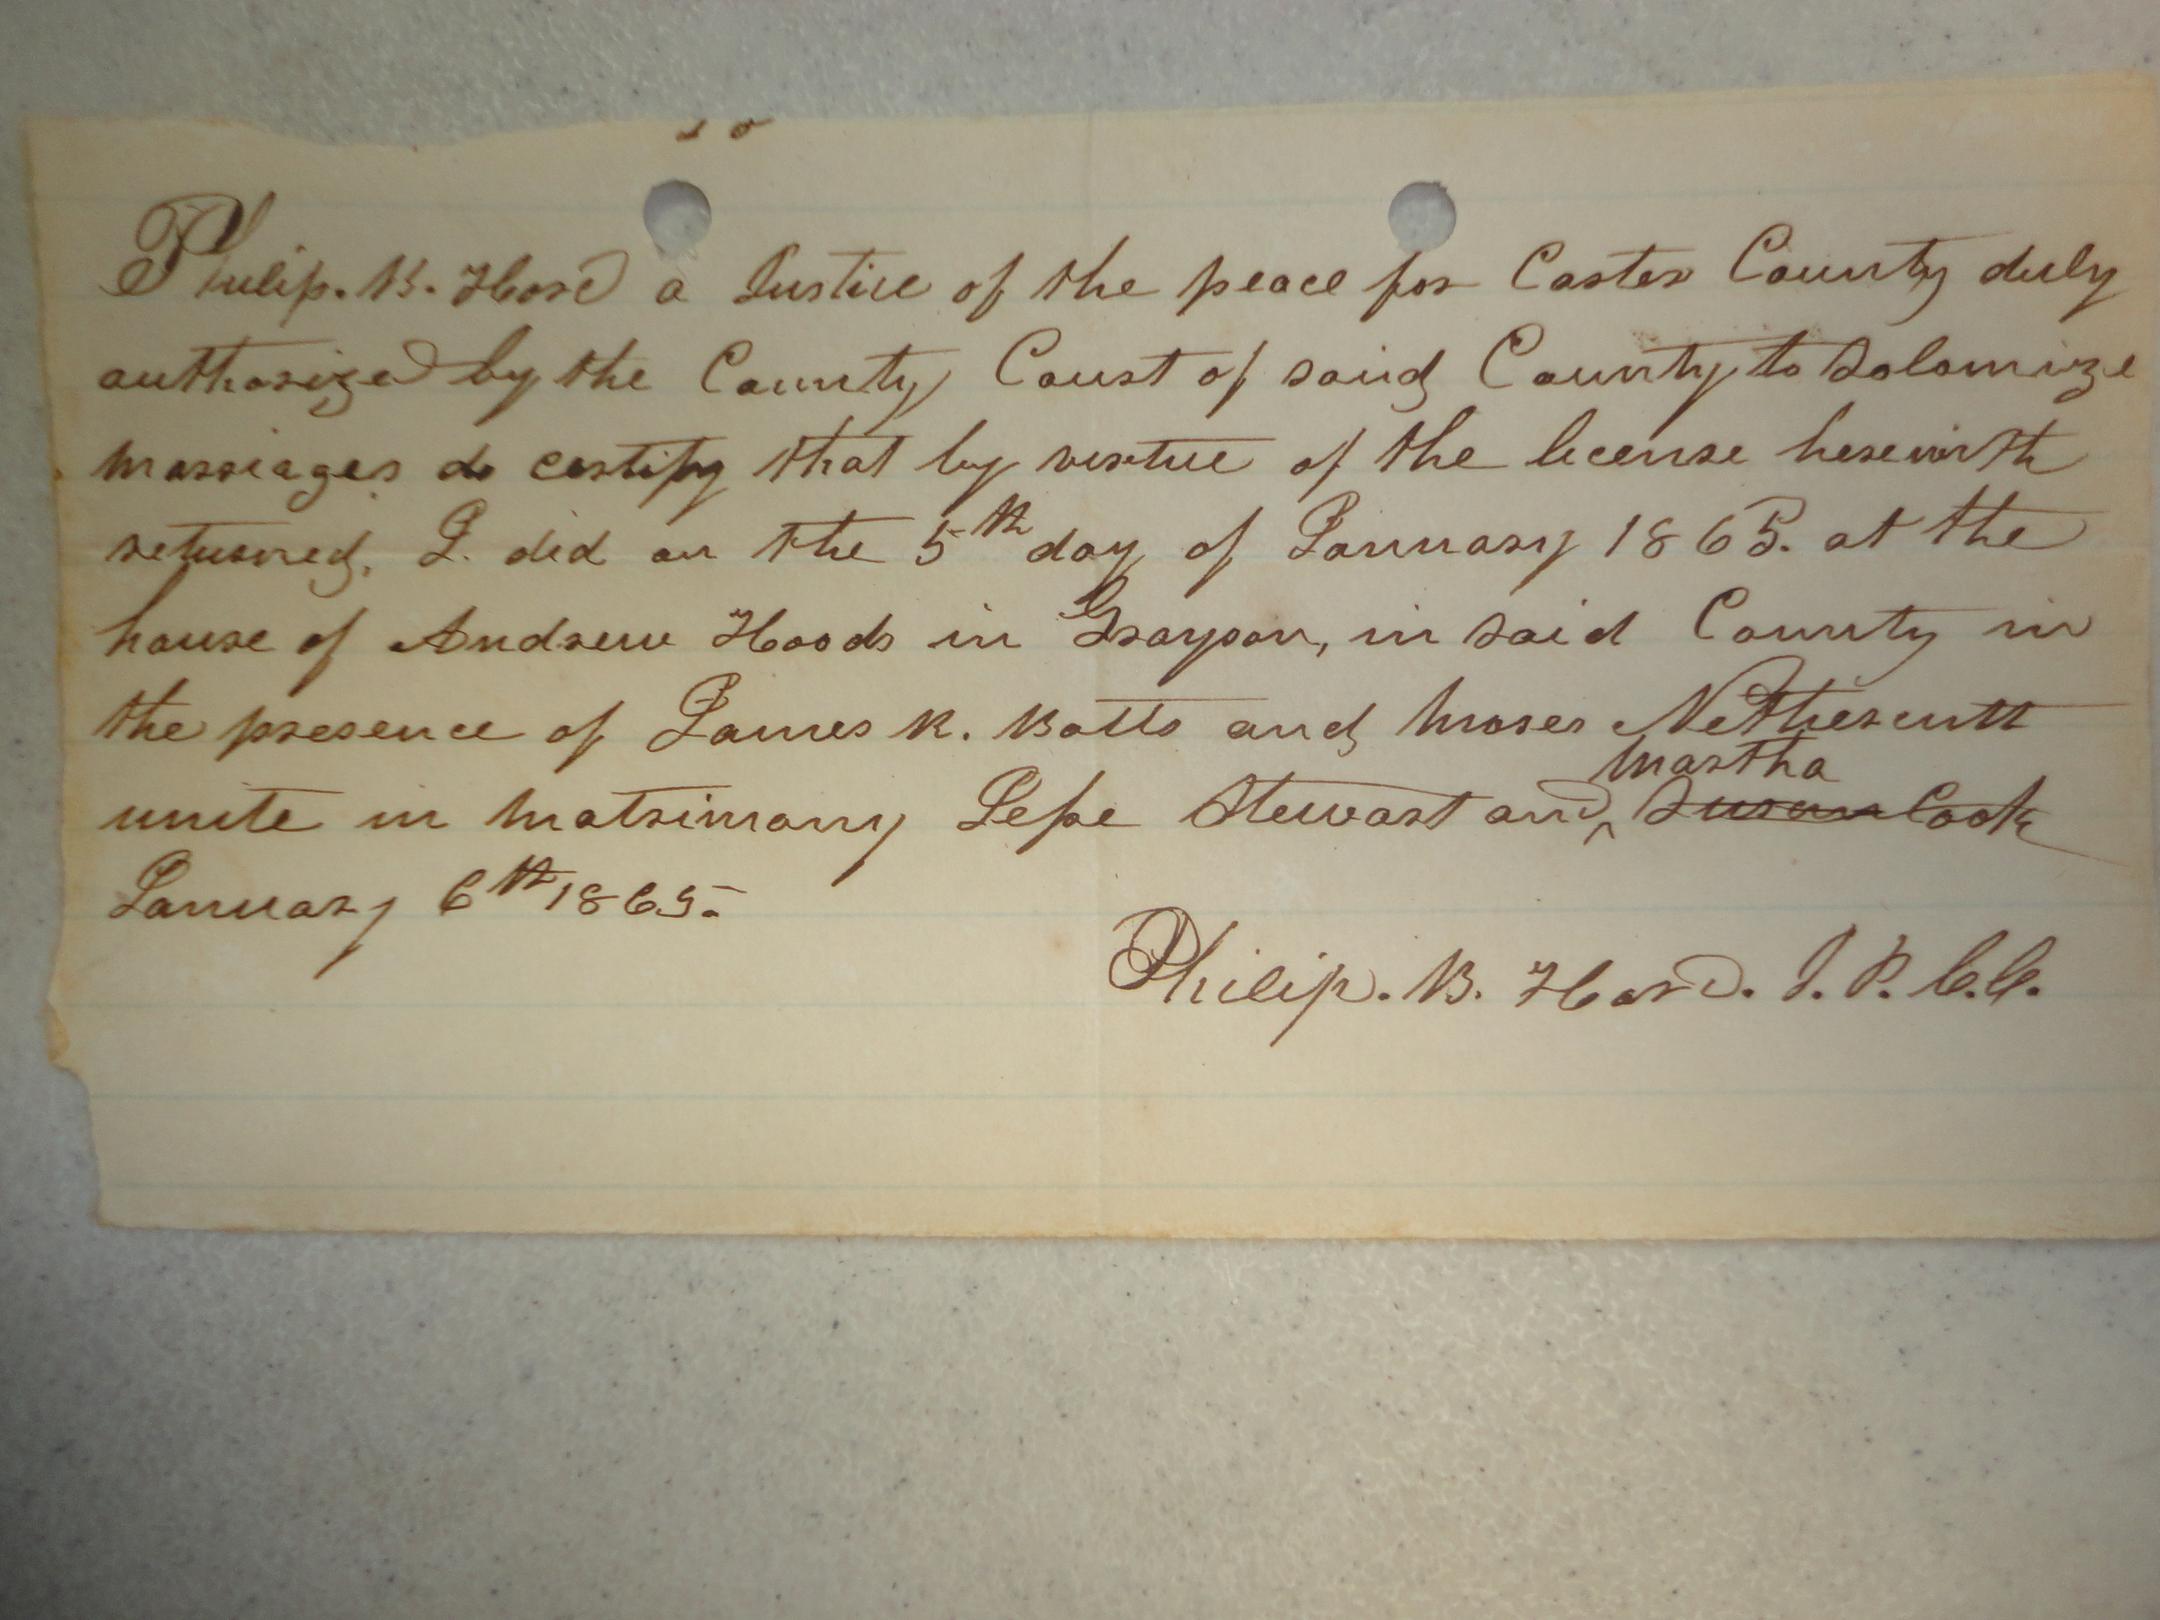 Philip. B. Hord a Justice of the peace for Carter County duly
authorized by the County Court of said County to Solomnize
marriages do certify that by virtue of the license herewith
returned. I. did on the 5th day of January 1865. at the
house of Andrew Hoods in Grayson, in said County in
the presence of James K. Botts and Moses Nethercutt
Martha
unite in matrimony Jefse Stewart and Susan Cook
January 6th 1865.
Philip. B. Hord. J. P. C. C.